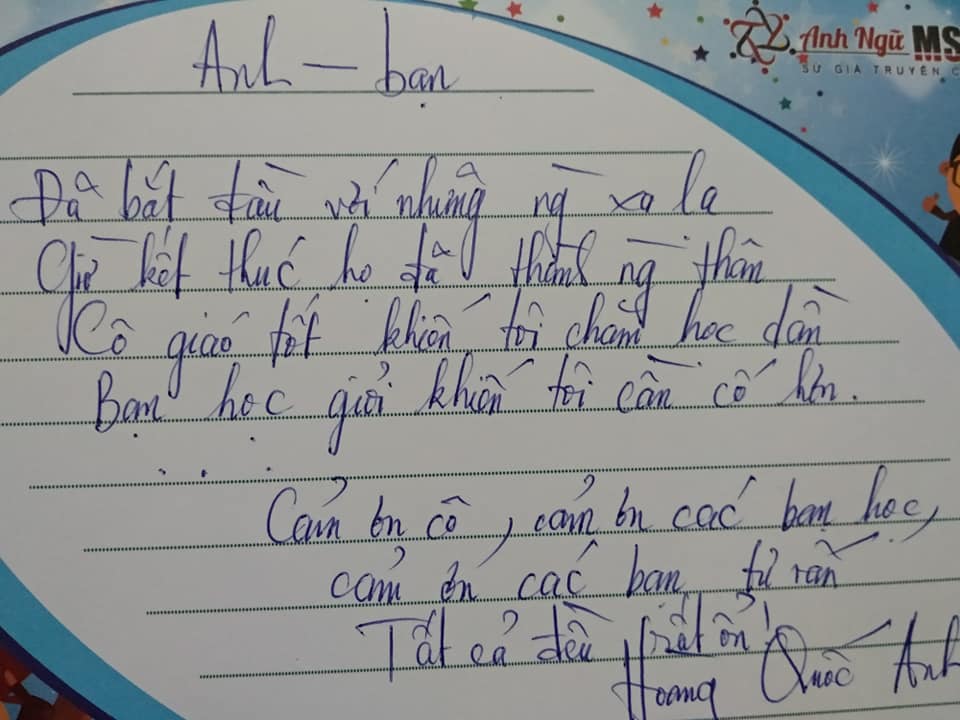 Anh Ngữ MS
SỨ GIẢ TRUYỀN C
Anh – bạn
Đã bắt đầu với những ng xa lạ
Giờ kết thúc họ đã thành ng thân
Cô giáo tốt khiến tôi chăm học dần
Bạn học giỏi khiến tôi cần cố hơn.
. . .
Cảm ơn cô, cảm ơn các bạn học,
cảm ơn các bạn
Tất cả đều rất ổn!
Hoàng Quốc Anh